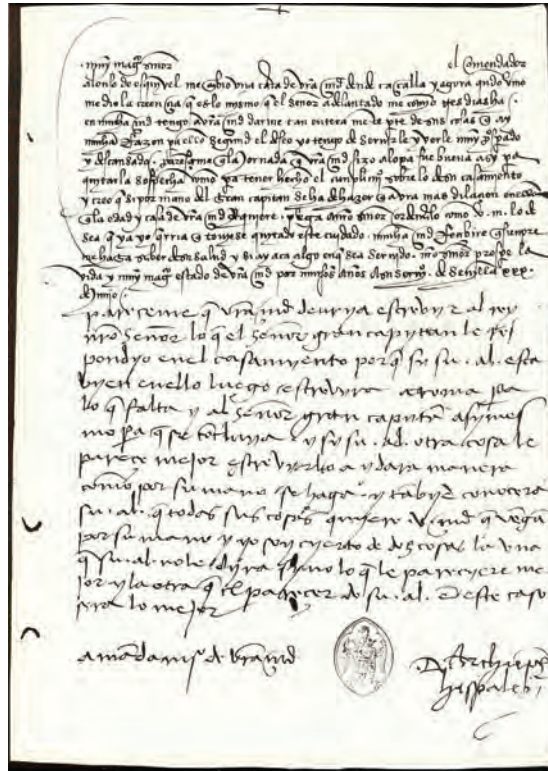 muy mag.co señor el comendador
alonso desquivel me enbio una carta de vra md dende caçalla y agora q̃ndo vino
me dio la creençia q̃ es lo mismo q̃ el señor adelantado me como tres dias ha.
en mucha md tengo a vra md darme tan entera me parte de sus cosas q̃ ay
mucha Razon pa ello segund el deseo yo tengo de servirle y verle muy prosperado
y descansado. pareçeme q̃ la jornada q̃ vra md hizo a lopa fue buena asy pa
quitar la sospecha como pa tener hecho el cunplimio sobre lo de su casamiento
y creo q̃ si por mano del gran capitan se ha de hazer q̃ avra mas dilaçion
q̃ la edad y casa de vra md Requiere. plega a nro señor ordenallo como v. m. lo de
sea q̃ ya yo q̃rria q̃ toviese quitado este cuydado. mucha md Reçibire q̃ sienpre
me haga saber de su salud y si ay aca algo en q̃ sea servido. nro señor prospe la
vida y muy mag.co estado de vra md por muchos años a su servo. de sevilla xxx.
de junio.
pareçeme q̃ vra md devrya escrevyr al rey
nro señor lo q̃ el señor gran capytan le Res
pondyo en el casamyento porq̃ sy su. al. esta
byen en ello luego escrevyra a Roma pa
lo q̃ falta y al señor gran capytan asymes
mo pa q̃ se concluya y sy su. al. otra cosa le
pareçe mejor escrevyrlo a y dara manera
como por su mano se haga. y tabyẽ conoçera
su. al. q̃ todas sus cosas quyere v. md q̃ vẽgã
por su mano y yo soy cyerto de dos cosas la una
q̃ su. al. no le dyra syno lo q̃ le pareçyere me
jor y la otra q̃ el pareçer de su. al. deste caso
sera lo mejor
a mandamyo de vra md
D. archiepus
hispalen